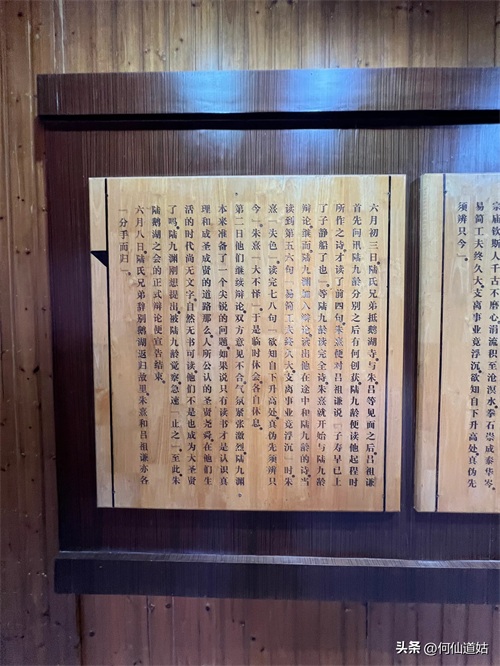 宗庙钦斯人千古不磨心。涓流积至沧溟水。拳石崇成泰华岑。
易简工夫终久大。支离事业竟浮沉。欲知自下升高处。真伪先
须辨只今”。
六月初三日。陆氏兄弟抵鹅湖寺。与朱吕等见面之后。吕祖谦
首先问讯陆九龄分别之后有何创获。陆九龄便读他起程时
所作之诗。才读了前四句。朱熹便对吕祖谦说“子寿早已上
了子静船了也”。等陆九龄读完全诗。朱熹就开始与陆九龄
辩论。继而陆九渊加入辩论。读出他在途中和陆九龄的诗。当
读到第五六句“易简工夫终久大。支离事业竟浮沉”时。朱
熹“失色”。读完七八句“欲知自下升高处。真伪先须辨只
今”。朱熹“大不怿”。于是临时休会。各自休息。
第二日他们继续辩论。双方意见不合。气氛紧张激烈。陆九渊。
本来准备了一个尖锐的问题。如果说只有读书才是认识真
理和成圣成贤的道路。那么人所公认的圣贤尧舜。在他们生
活的时代尚无文字。自然无书可读。他们不是也成为大圣贤
了吗。陆九渊刚想提出。被陆九龄觉察。急速“止之”。至此。朱
陆鹅湖之会的正式辩论便宣告结束。
六月八日。陆氏兄弟辞别鹅湖返归故里。朱熹和吕祖谦亦各
“分手而归”。
头条 @何仙道姑